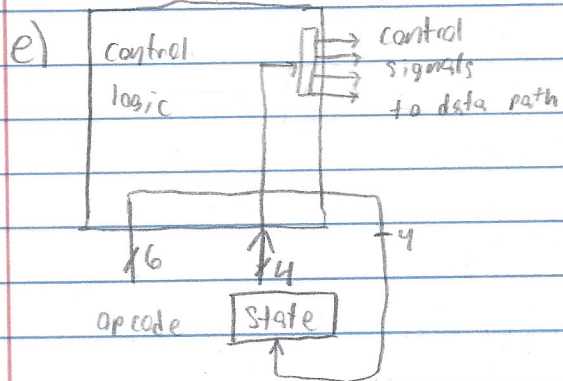 e)
control
logic
control
signals
to data path
6
4
4
opcode
state